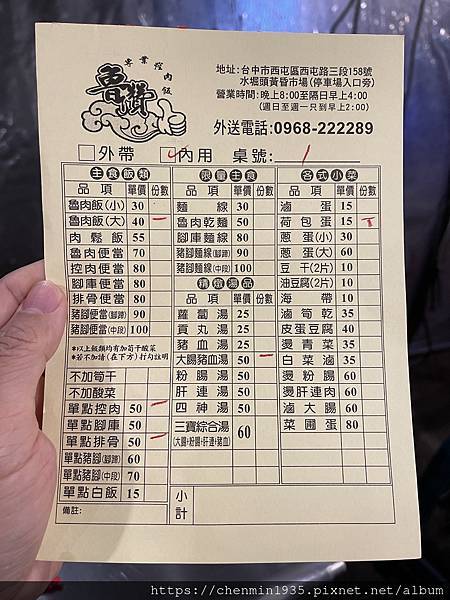 專業控肉飯
魯讚
地址:台中市西屯區西屯路三段158號
水堀頭黃昏市場(停車場入口旁)
營業時間:晚上8:00至隔日早上4:00
(週日至週一只到早上2:00)
外送電話:0968-222289
外帶 內用 桌號: 1
主食飯類
品項 單價 份數
魯肉飯(小) 30
魯肉飯(大) 40 一
肉鬆飯 55
魯肉便當 70
控肉便當 80
腳庫便當 80
排骨便當 80
豬腳便當(腳蹄) 90
豬腳便當(中段) 100
*以上飯類均有加筍干酸菜
*若不加請(在下方)打勾註明
不加筍干
不加酸菜
單點控肉 50 一
單點腳庫 50
單點排骨 50 一
單點豬腳(腳蹄) 60
單點豬腳(中段) 70
單點白飯 15
備註:
限量主食
品項 單價 份數
麵線 30
魯肉乾麵 50
腳庫麵線 80
豬腳麵線(腳蹄) 90
豬腳麵線(中段) 100
精緻湯品
品項 單價 份數
蘿蔔湯 25
貢丸湯 25
豬血湯 25
大腸豬血湯 50 一
粉腸湯 50
肝連湯 50
四神湯 50
三寶綜合湯 60
(大腸+粉腸+肝連+豬血)
小計
各式小菜
品項 單價 份數
滷蛋 15
荷包蛋 15
蔥蛋(小) 30
蔥蛋(大) 60
豆干(2片) 10
油豆腐(2片) 10
海帶 10
滷筍乾 35
皮蛋豆腐 40
燙青菜 35
白菜滷 35
燙粉腸 60
燙肝連肉 60
滷大腸 60
菜圃蛋 80
https://chenmin1935.pixnet.net/album